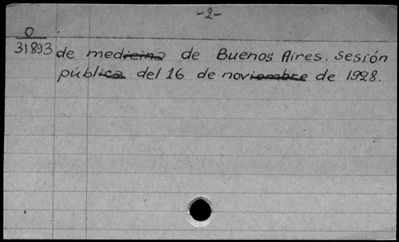 -2-
O
31893 de medicina de Buenos Aires. Sesión
pública del 16 de noviembre de 1928.